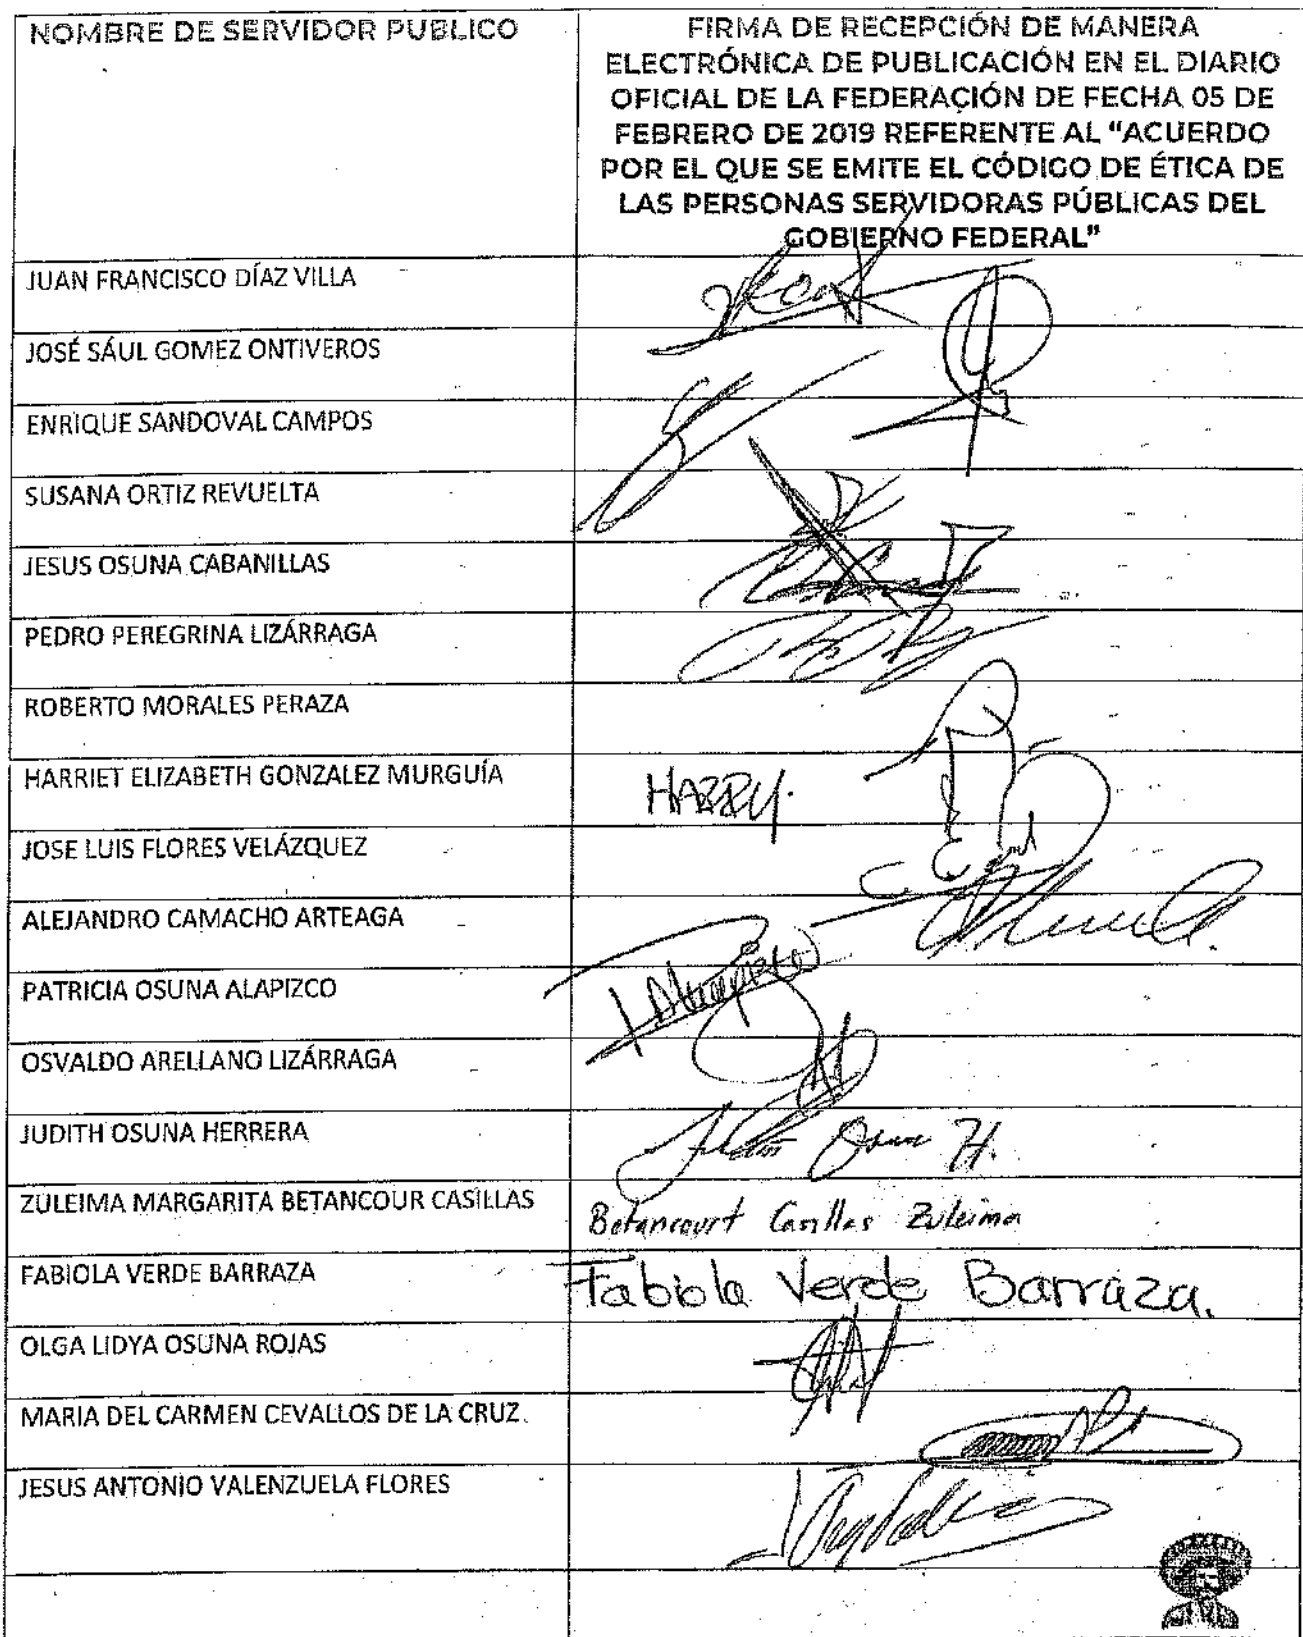 NOMBRE DE SERVIDOR PUBLICO
FIRMA DE RECEPCIÓN DE MANERA
ELECTRÓNICA DE PUBLICACIÓN EN EL DIARIO
OFICIAL DE LA FEDERACIÓN DE FECHA 05 DE
FEBRERO DE 2019 REFERENTE AL “ACUERDO
POR EL QUE SE EMITE EL CÓDIGO DE ÉTICA DE
LAS PERSONAS SERVIDORAS PÚBLICAS DEL
GOBIERNO FEDERAL”
JUAN FRANCISCO DÍAZ VILLA
JOSÉ SÁUL GOMEZ ONTIVEROS
ENRIQUE SANDOVAL CAMPOS
SUSANA ORTIZ REVUELTA
JESUS OSUNA CABANILLAS
PEDRO PEREGRINA LIZÁRRAGA
ROBERTO MORALES PERAZA
HARRIET ELIZABETH GONZALEZ MURGUÍA
HARRY.
JOSE LUIS FLORES VELÁZQUEZ
ALEJANDRO CAMACHO ARTEAGA
PATRICIA OSUNA ALAPIZCO
OSVALDO ARELLANO LIZÁRRAGA
JUDITH OSUNA HERRERA
Judith Osuna H.
ZULEIMA MARGARITA BETANCOUR CASILLAS
Betancourt Casillas Zuleima
FABIOLA VERDE BARRAZA
Fabiola Verde Barraza.
OLGA LIDYA OSUNA ROJAS
MARIA DEL CARMEN CEVALLOS DE LA CRUZ.
JESUS ANTONIO VALENZUELA FLORES